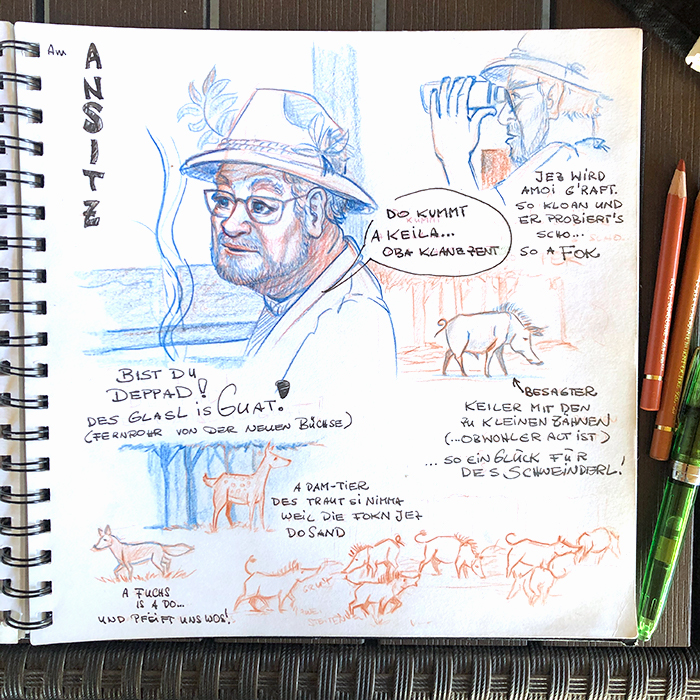 Am
ANSITZ
DO KUMMT
A KEILA...
OBA KLANE ZENT
JEZ WIRD
AMOI G'RAFT.
SO KLOAN UND
ER PROBIERT'S
SCHO...
SO A FOK
BIST DU
DEPPAD!
DES GLASL IS GUAT!
(FERNROHR VON DER NEUEN BÜCHSE)
BESAGTER
KEILER MIT DEN
ZU KLEINEN ZÄHNEN
(...OBWOHL ER ALT IST)
...SO EIN GLÜCK FÜR
DES SCHWEINDERL!
A DAM-TIER
DES TRAUT SI NIMMA
WEIL DIE FOKN JEZ
DO SAND
A FUCHS
IS A DO...
UND PFEIFT UNS WOS!
GRUNZ